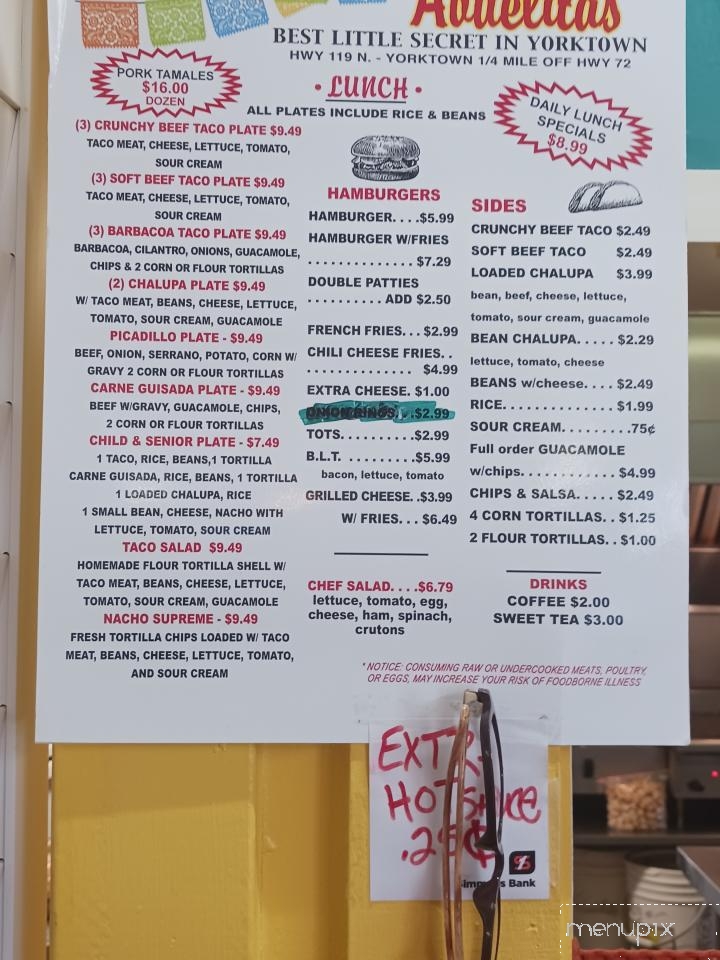 Abuelitas
BEST LITTLE SECRET IN YORKTOWN
HWY 119 N. - YORKTOWN 1/4 MILE OFF HWY 72
PORK TAMALES
$16.00
DOZEN
• LUNCH •
ALL PLATES INCLUDE RICE & BEANS
DAILY LUNCH
SPECIALS
$8.99
(3) CRUNCHY BEEF TACO PLATE $9.49
TACO MEAT, CHEESE, LETTUCE, TOMATO,
SOUR CREAM
(3) SOFT BEEF TACO PLATE $9.49
TACO MEAT, CHEESE, LETTUCE, TOMATO,
SOUR CREAM
(3) BARBACOA TACO PLATE $9.49
BARBACOA, CILANTRO, ONIONS, GUACAMOLE,
CHIPS & 2 CORN OR FLOUR TORTILLAS
(2) CHALUPA PLATE $9.49
W/ TACO MEAT, BEANS, CHEESE, LETTUCE,
TOMATO, SOUR CREAM, GUACAMOLE
PICADILLO PLATE - $9.49
BEEF, ONION, SERRANO, POTATO, CORN W/
GRAVY 2 CORN OR FLOUR TORTILLAS
CARNE GUISADA PLATE - $9.49
BEEF W/GRAVY, GUACAMOLE, CHIPS,
2 CORN OR FLOUR TORTILLAS
CHILD & SENIOR PLATE - $7.49
1 TACO, RICE, BEANS,1 TORTILLA
CARNE GUISADA, RICE, BEANS, 1 TORTILLA
1 LOADED CHALUPA, RICE
1 SMALL BEAN, CHEESE, NACHO WITH
LETTUCE, TOMATO, SOUR CREAM
TACO SALAD $9.49
HOMEMADE FLOUR TORTILLA SHELL W/
TACO MEAT, BEANS, CHEESE, LETTUCE,
TOMATO, SOUR CREAM, GUACAMOLE
NACHO SUPREME - $9.49
FRESH TORTILLA CHIPS LOADED W/ TACO
MEAT, BEANS, CHEESE, LETTUCE, TOMATO,
AND SOUR CREAM
HAMBURGERS
HAMBURGER. . . .$5.99
HAMBURGER W/FRIES
. . . . . . . . . . . . . $7.29
DOUBLE PATTIES
. . . . . . . . . . ADD $2.50
FRENCH FRIES. . . $2.99
CHILI CHEESE FRIES. .
. . . . . . . . . . . . . . $4.99
EXTRA CHEESE. $1.00
ONION RINGS. . .$2.99
TOTS. . . . . . . . . .$2.99
B.L.T. . . . . . . . . .$5.99
bacon, lettuce, tomato
GRILLED CHEESE. .$3.99
W/ FRIES. . . $6.49
CHEF SALAD. . . .$6.79
lettuce, tomato, egg,
cheese, ham, spinach,
crutons
SIDES
CRUNCHY BEEF TACO $2.49
SOFT BEEF TACO $2.49
LOADED CHALUPA $3.99
bean, beef, cheese, lettuce,
tomato, sour cream, guacamole
BEAN CHALUPA. . . . . $2.29
lettuce, tomato, cheese
BEANS w/cheese. . . . $2.49
RICE. . . . . . . . . . . . . $1.99
SOUR CREAM. . . . . . . . .75¢
Full order GUACAMOLE
w/chips. . . . . . . . . . . $4.99
CHIPS & SALSA. . . . . $2.49
4 CORN TORTILLAS. . $1.25
2 FLOUR TORTILLAS. . $1.00
DRINKS
COFFEE $2.00
SWEET TEA $3.00
* NOTICE: CONSUMING RAW OR UNDERCOOKED MEATS, POULTRY,
OR EGGS, MAY INCREASE YOUR RISK OF FOODBORNE ILLNESS
EXTRA
HOT SAUCE
.25¢
Simmons Bank
menupix